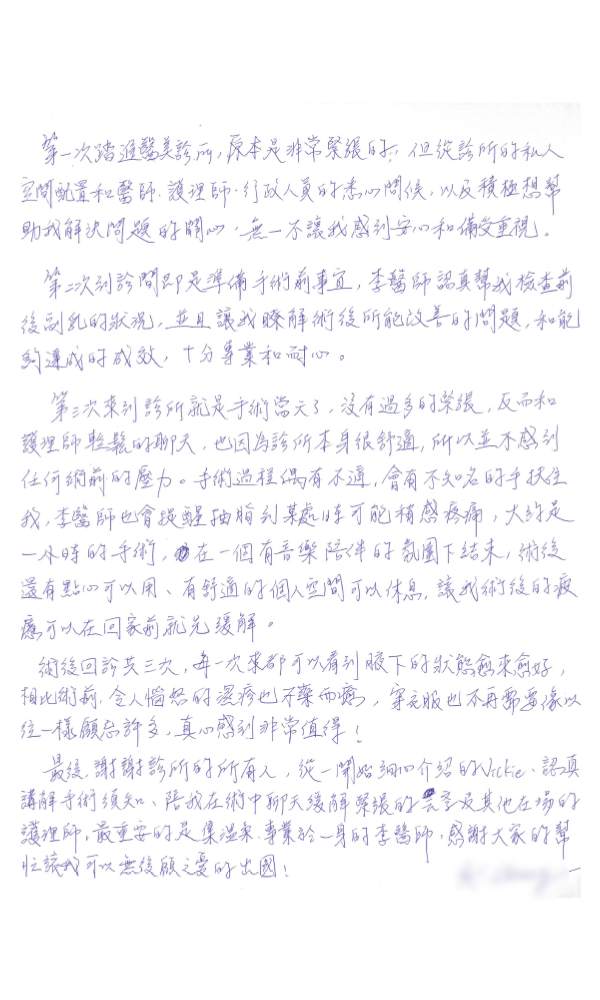 第一次踏進醫美診所，原本是非常緊張的，但從診所的私人
空間配置和醫師、護理師、行政人員的悉心問候，以及積極想幫
助我解決問題的關心，無一不讓我感到安心和備受重視。
第二次到診間即是準備手術前事宜，李醫師認真幫我檢查前
後副乳的狀況，並且讓我瞭解術後所能改善的問題，和能
夠達成的成效，十分專業和耐心。
第三次來到診所就是手術當天了，沒有過多的緊張，反而和
護理師輕鬆的聊天，也因為診所本身很舒適，所以並不感到
任何術前的壓力。手術過程偶有不適，會有不知名的手扶住
我，李醫師也會提醒抽脂到某處時可能稍感疼痛，大約是
一小時的手術，在一個有音樂陪伴的氛圍下結束，術後
還有點心可以用、有舒適的個人空間可以休息，讓我術後的疲
憊可以在回家前就先緩解。
術後回診共三次，每一次來都可以看到腋下的狀態愈來愈好，
相比術前，令人惱怒的濕疹也不藥而癒，穿衣服也不再需要像以
往一樣顧忌許多，真心感到非常值得！
最後，謝謝診所的所有人，從一開始細心介紹的Vickie、認真
講解手術須知、陪我在術中聊天緩解緊張的及其他在場的
護理師，最重要的是集溫柔、專業於一身的李醫師，感謝大家的幫
忙讓我可以無後顧之憂的出國！